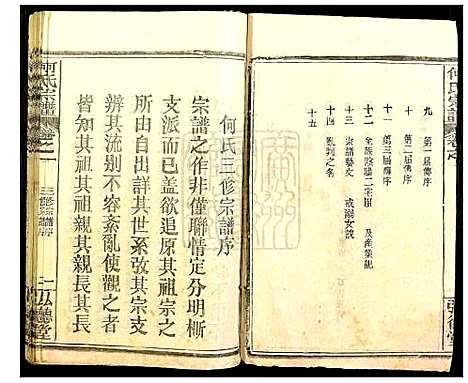 何氏宗譜
九 第一屆傳序
十 第二屆傳序
十一 第三屆傳序
十二 全族陰陽二宅圖 及產業規
十三 宗譜藝文 戒溺女說
十四
十五
何氏三修宗譜序
宗譜之作非僅聯情定分明斬
支派而已蓋欲追原其祖宗之
所由自出詳其世系攷其宗支
辨其流別不容紊亂使觀之者
皆知其祖其親其長其
何氏宗譜
卷之一
三修宗譜序
一
弘德堂